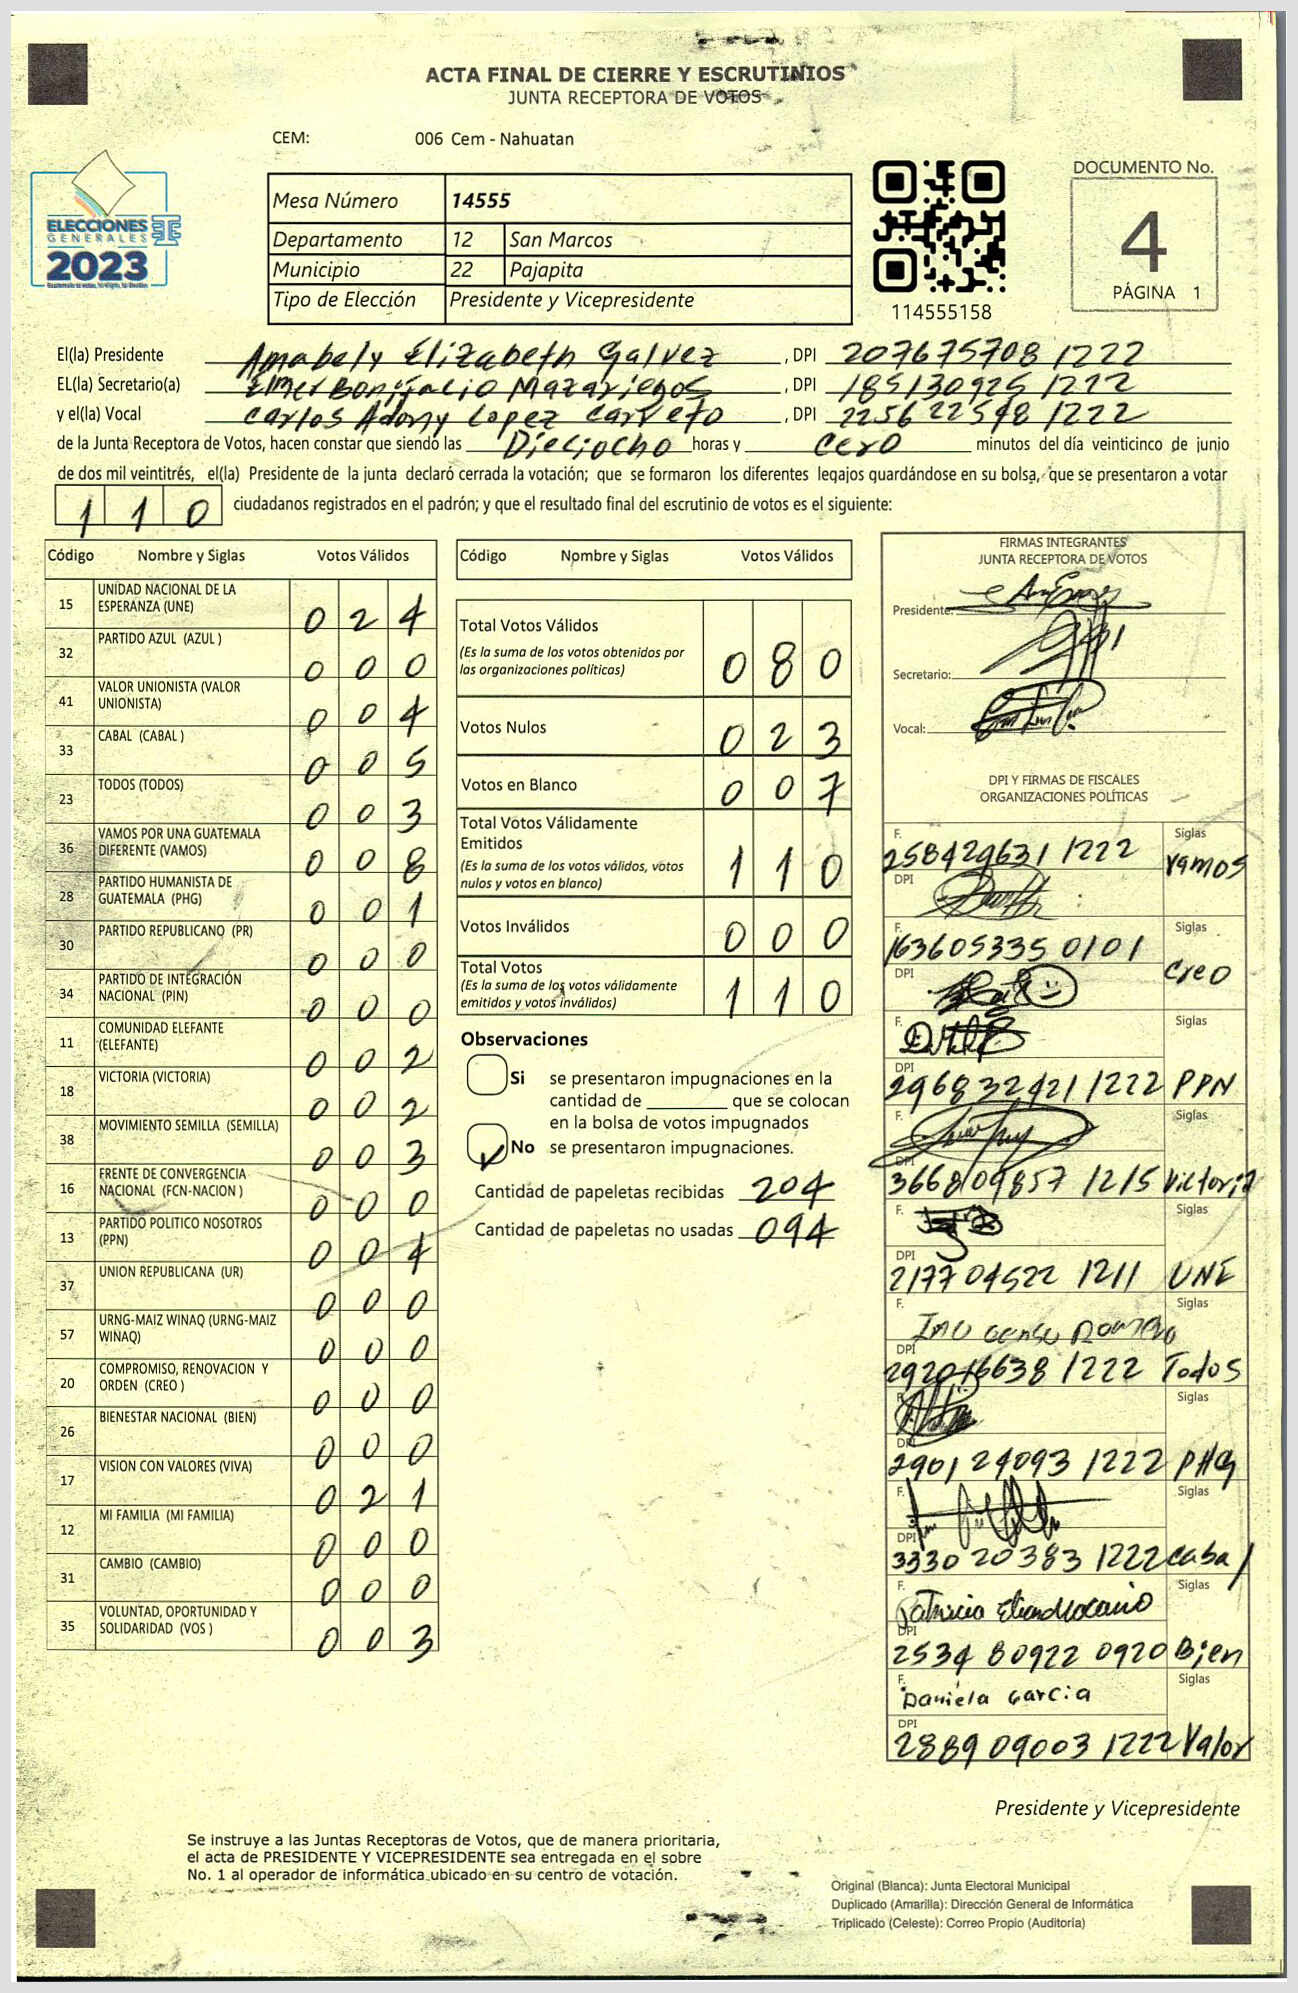 ACTA FINAL DE CIERRE Y ESCRUTINIOS
JUNTA RECEPTORA DE VOTOS
CEM: 006 Cem - Nahuatan
ELECCIONES
GENERALES
2023
Mesa Número 14555
Departamento 12 San Marcos
Municipio 22 Pajapita
Tipo de Elección Presidente y Vicepresidente
114555158
DOCUMENTO No.
4
PÁGINA 1
El(la) Presidente Anabely Elizabeth Galvez, DPI 207675708 1222
EL(la) Secretario(a) Elmer Bonifacio Mazariegos, DPI 185130925 1222
y el(la) Vocal Carlos Adony Lopez Carreto, DPI 225622598 1222
de la Junta Receptora de Votos, hacen constar que siendo las Dieciocho horas y cero minutos del día veinticinco de junio
de dos mil veintitrés, el(la) Presidente de la junta declaró cerrada la votación; que se formaron los diferentes legajos guardándose en su bolsa, que se presentaron a votar
110 ciudadanos registrados en el padrón; y que el resultado final del escrutinio de votos es el siguiente:
Código Nombre y Siglas Votos Válidos
15 UNIDAD NACIONAL DE LA ESPERANZA (UNE) 024
32 PARTIDO AZUL (AZUL ) 000
41 VALOR UNIONISTA (VALOR UNIONISTA) 004
33 CABAL (CABAL ) 005
23 TODOS (TODOS) 003
36 VAMOS POR UNA GUATEMALA DIFERENTE (VAMOS) 008
28 PARTIDO HUMANISTA DE GUATEMALA (PHG) 001
30 PARTIDO REPUBLICANO (PR) 000
34 PARTIDO DE INTEGRACIÓN NACIONAL (PIN) 000
11 COMUNIDAD ELEFANTE (ELEFANTE) 002
18 VICTORIA (VICTORIA) 002
38 MOVIMIENTO SEMILLA (SEMILLA) 003
16 FRENTE DE CONVERGENCIA NACIONAL (FCN-NACION ) 000
13 PARTIDO POLITICO NOSOTROS (PPN) 004
37 UNION REPUBLICANA (UR) 000
57 URNG-MAIZ WINAQ (URNG-MAIZ WINAQ) 000
20 COMPROMISO, RENOVACION Y ORDEN (CREO ) 000
26 BIENESTAR NACIONAL (BIEN) 000
17 VISION CON VALORES (VIVA) 021
12 MI FAMILIA (MI FAMILIA) 000
31 CAMBIO (CAMBIO) 000
35 VOLUNTAD, OPORTUNIDAD Y SOLIDARIDAD (VOS ) 003
Código Nombre y Siglas Votos Válidos
Total Votos Válidos 080
(Es la suma de los votos obtenidos por
las organizaciones políticas)
Votos Nulos 023
Votos en Blanco 007
Total Votos Válidamente
Emitidos 110
(Es la suma de los votos válidos, votos
nulos y votos en blanco)
Votos Inválidos 000
Total Votos 110
(Es la suma de los votos válidamente
emitidos y votos inválidos)
Observaciones
Si se presentaron impugnaciones en la
cantidad de ________ que se colocan
en la bolsa de votos impugnados
No se presentaron impugnaciones.
Cantidad de papeletas recibidas 204
Cantidad de papeletas no usadas 094
FIRMAS INTEGRANTES
JUNTA RECEPTORA DE VOTOS
Presidente:
Secretario:
Vocal:
DPI Y FIRMAS DE FISCALES
ORGANIZACIONES POLÍTICAS
F. Siglas
258429631 1222 Vamos
DPI
F. Siglas
163605335 0101 Creo
DPI
F. Siglas
DPI
296832421 1222 PPN
F. Siglas
DPI
366809857 1215 Victoria
F. Siglas
DPI
217704522 1211 UNE
F. Siglas
DPI
292016638 1222 Todos
F. Siglas
DPI
290124093 1222 PHG
F. Siglas
DPI
333020383 1222 Cabal
F. Patricia Siglas
DPI
253480922 0920 Bien
F. Daniela Garcia Siglas
DPI
288909003 1222 Valor
Presidente y Vicepresidente
Se instruye a las Juntas Receptoras de Votos, que de manera prioritaria,
el acta de PRESIDENTE Y VICEPRESIDENTE sea entregada en el sobre
No. 1 al operador de informática ubicado en su centro de votación.
Original (Blanca): Junta Electoral Municipal
Duplicado (Amarilla): Dirección General de Informática
Triplicado (Celeste): Correo Propio (Auditoría)